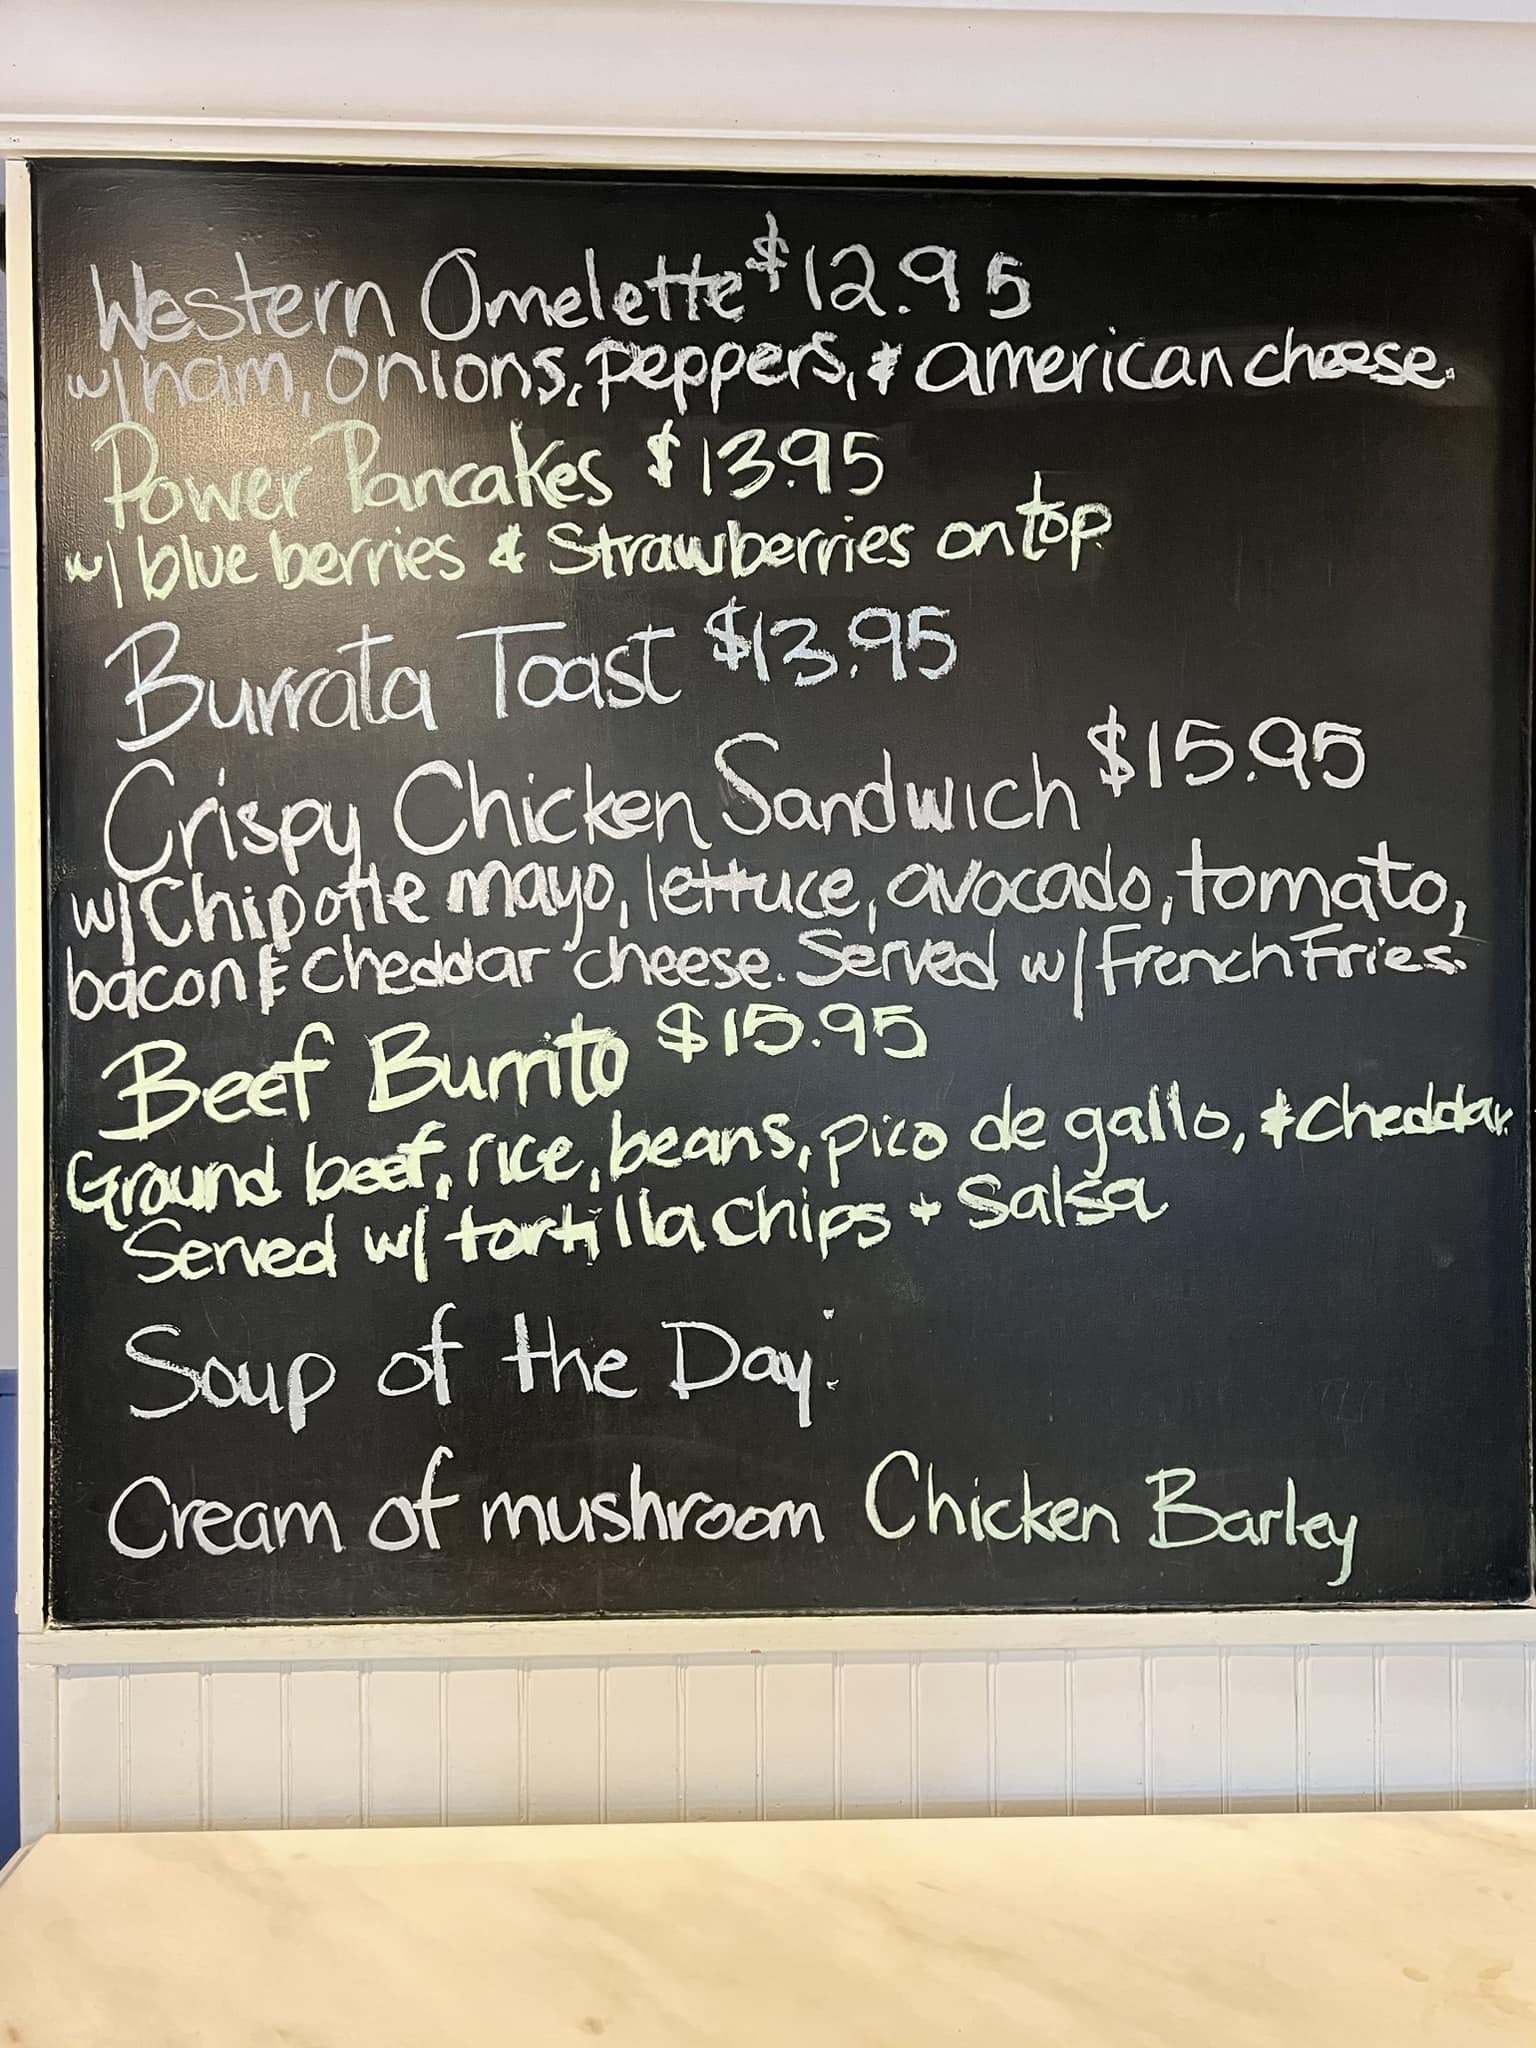 Western Omelette $12.95
w/ ham, onions, peppers, & american cheese.
Power Pancakes $13.95
w/ blue berries & Strawberries on top
Burrata Toast $13.95
Crispy Chicken Sandwich $15.95
w/ Chipotle mayo, lettuce, avocado, tomato,
bacon & cheddar cheese. Served w/ French Fries.
Beef Burrito $15.95
Ground beef, rice, beans, pico de gallo, & cheddar.
Served w/ tortilla chips + salsa
Soup of the Day:
Cream of mushroom Chicken Barley